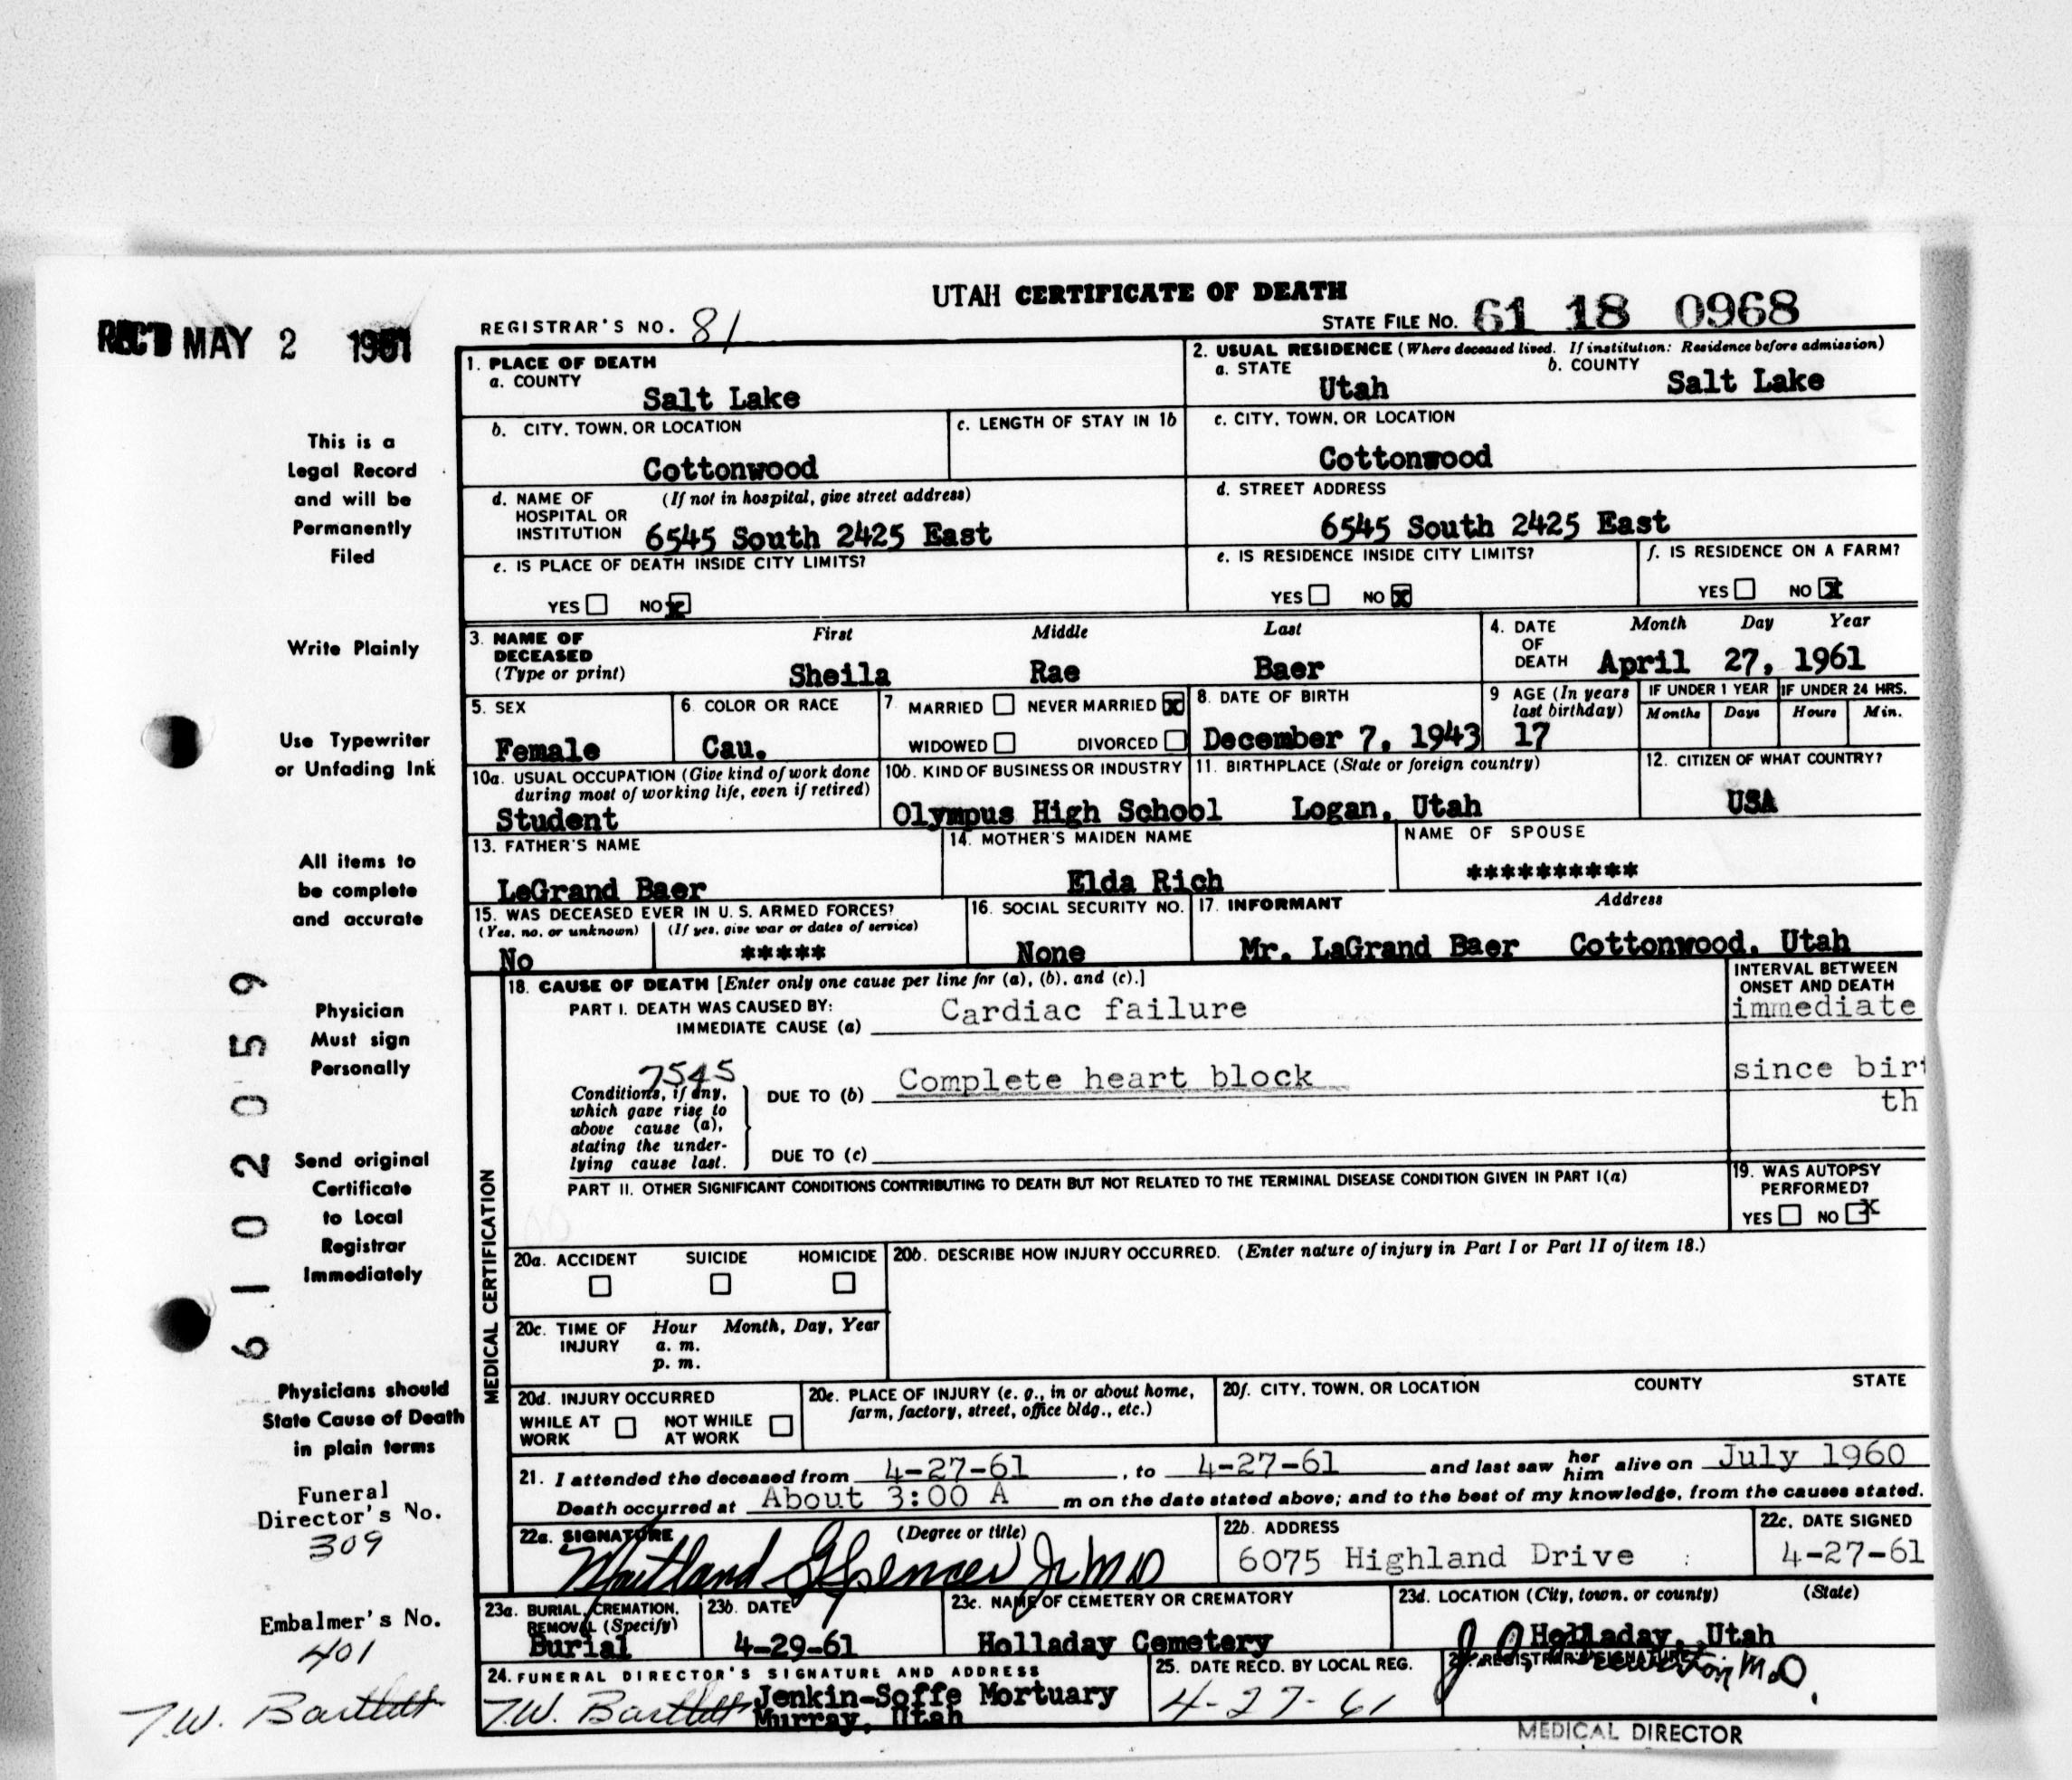 UTAH CERTIFICATE OF DEATH
REC'D MAY 2 1961
REGISTRAR'S NO. 81
STATE FILE NO. 61 18 0968
This is a
Legal Record
and will be
Permanently
Filed
Write Plainly
Use Typewriter
or Unfading Ink
All items to
be complete
and accurate
Physician
Must sign
Personally
Send original
Certificate
to Local
Registrar
Immediately
Physicians should
State Cause of Death
in plain terms
Funeral
Director's No.
309
Embalmer's No.
401
T.W. Bartlett
61 02059
1. PLACE OF DEATH
a. COUNTY
Salt Lake
2. USUAL RESIDENCE (Where deceased lived. If institution: Residence before admission)
a. STATE
Utah
b. COUNTY
Salt Lake
b. CITY, TOWN, OR LOCATION
Cottonwood
c. LENGTH OF STAY IN 1b
c. CITY, TOWN, OR LOCATION
Cottonwood
d. NAME OF (If not in hospital, give street address)
HOSPITAL OR
INSTITUTION 6545 South 2425 East
d. STREET ADDRESS
6545 South 2425 East
e. IS PLACE OF DEATH INSIDE CITY LIMITS?
YES NO x
e. IS RESIDENCE INSIDE CITY LIMITS?
YES NO x
f. IS RESIDENCE ON A FARM?
YES NO x
3. NAME OF
DECEASED
(Type or print)
First Middle Last
Sheila Rae Baer
4. DATE
OF
DEATH
Month Day Year
April 27, 1961
5. SEX
Female
6. COLOR OR RACE
Cau.
7. MARRIED NEVER MARRIED x
WIDOWED DIVORCED
8. DATE OF BIRTH
December 7, 1943
9 AGE (In years
last birthday)
17
IF UNDER 1 YEAR
Months Days
IF UNDER 24 HRS.
Hours Min.
10a. USUAL OCCUPATION (Give kind of work done
during most of working life, even if retired)
Student
10b. KIND OF BUSINESS OR INDUSTRY
Olympus High School
11. BIRTHPLACE (State or foreign country)
Logan, Utah
12. CITIZEN OF WHAT COUNTRY?
USA
13. FATHER'S NAME
LeGrand Baer
14. MOTHER'S MAIDEN NAME
Elda Rich
NAME OF SPOUSE
**********
15. WAS DECEASED EVER IN U. S. ARMED FORCES?
(Yes, no, or unknown) (If yes, give war or dates of service)
No *****
16. SOCIAL SECURITY NO.
None
17. INFORMANT Address
Mr. LaGrand Baer Cottonwood, Utah
MEDICAL CERTIFICATION
18. CAUSE OF DEATH [Enter only one cause per line for (a), (b), and (c).]
PART I. DEATH WAS CAUSED BY:
IMMEDIATE CAUSE (a) Cardiac failure
INTERVAL BETWEEN
ONSET AND DEATH
immediate
7545
Conditions, if any,
which gave rise to
above cause (a),
stating the under-
lying cause last.
DUE TO (b) Complete heart block
since bir
th
DUE TO (c)
PART II. OTHER SIGNIFICANT CONDITIONS CONTRIBUTING TO DEATH BUT NOT RELATED TO THE TERMINAL DISEASE CONDITION GIVEN IN PART I(a)
19. WAS AUTOPSY
PERFORMED?
YES NO x
20a. ACCIDENT SUICIDE HOMICIDE
20b. DESCRIBE HOW INJURY OCCURRED. (Enter nature of injury in Part I or Part II of item 18.)
20c. TIME OF
INJURY
Hour Month, Day, Year
a. m.
p. m.
20d. INJURY OCCURRED
WHILE AT
WORK
NOT WHILE
AT WORK
20e. PLACE OF INJURY (e. g., in or about home,
farm, factory, street, office bldg., etc.)
20f. CITY, TOWN, OR LOCATION COUNTY STATE
21. I attended the deceased from 4-27-61, to 4-27-61 and last saw her him alive on July 1960
Death occurred at About 3:00 A m on the date stated above; and to the best of my knowledge, from the causes stated.
22a. SIGNATURE (Degree or title)
Maitland G Spencer Jr MD
22b. ADDRESS
6075 Highland Drive
22c. DATE SIGNED
4-27-61
23a. BURIAL, CREMATION,
REMOVAL (Specify)
Burial
23b. DATE
4-29-61
23c. NAME OF CEMETERY OR CREMATORY
Holladay Cemetery
23d. LOCATION (City, town, or county) (State)
Holladay, Utah
24. FUNERAL DIRECTOR'S SIGNATURE AND ADDRESS
T.W. Bartlett Jenkin-Soffe Mortuary
Murray, Utah
25. DATE RECD. BY LOCAL REG.
4-27-61
REGISTRAR'S SIGNATURE
M.D.
MEDICAL DIRECTOR